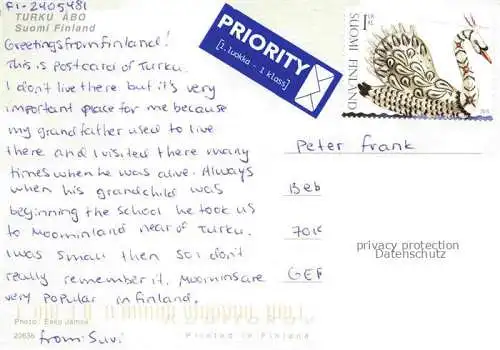 FI-2405481
TURKU ÅBO
Suomi Finland
Greetings from Finland!
This is postcard of Turku.
I don't live there but it's very
important place for me because
my grandfather used to live
there and I visited there many
times when he was alive. Always
when his grandchild was
beginning the school he took us
to Moominland near of Turku.
I was small then so I don't
really remember it. Moomins are
very popular in Finland.
Photo: Esko Jämsä
20636
Printed in Finland
from: Suvi
PRIORITY
[1. luokka - 1 klass]
1
SUOMI FINLAND
Peter Frank
privacy protection
Datenschutz